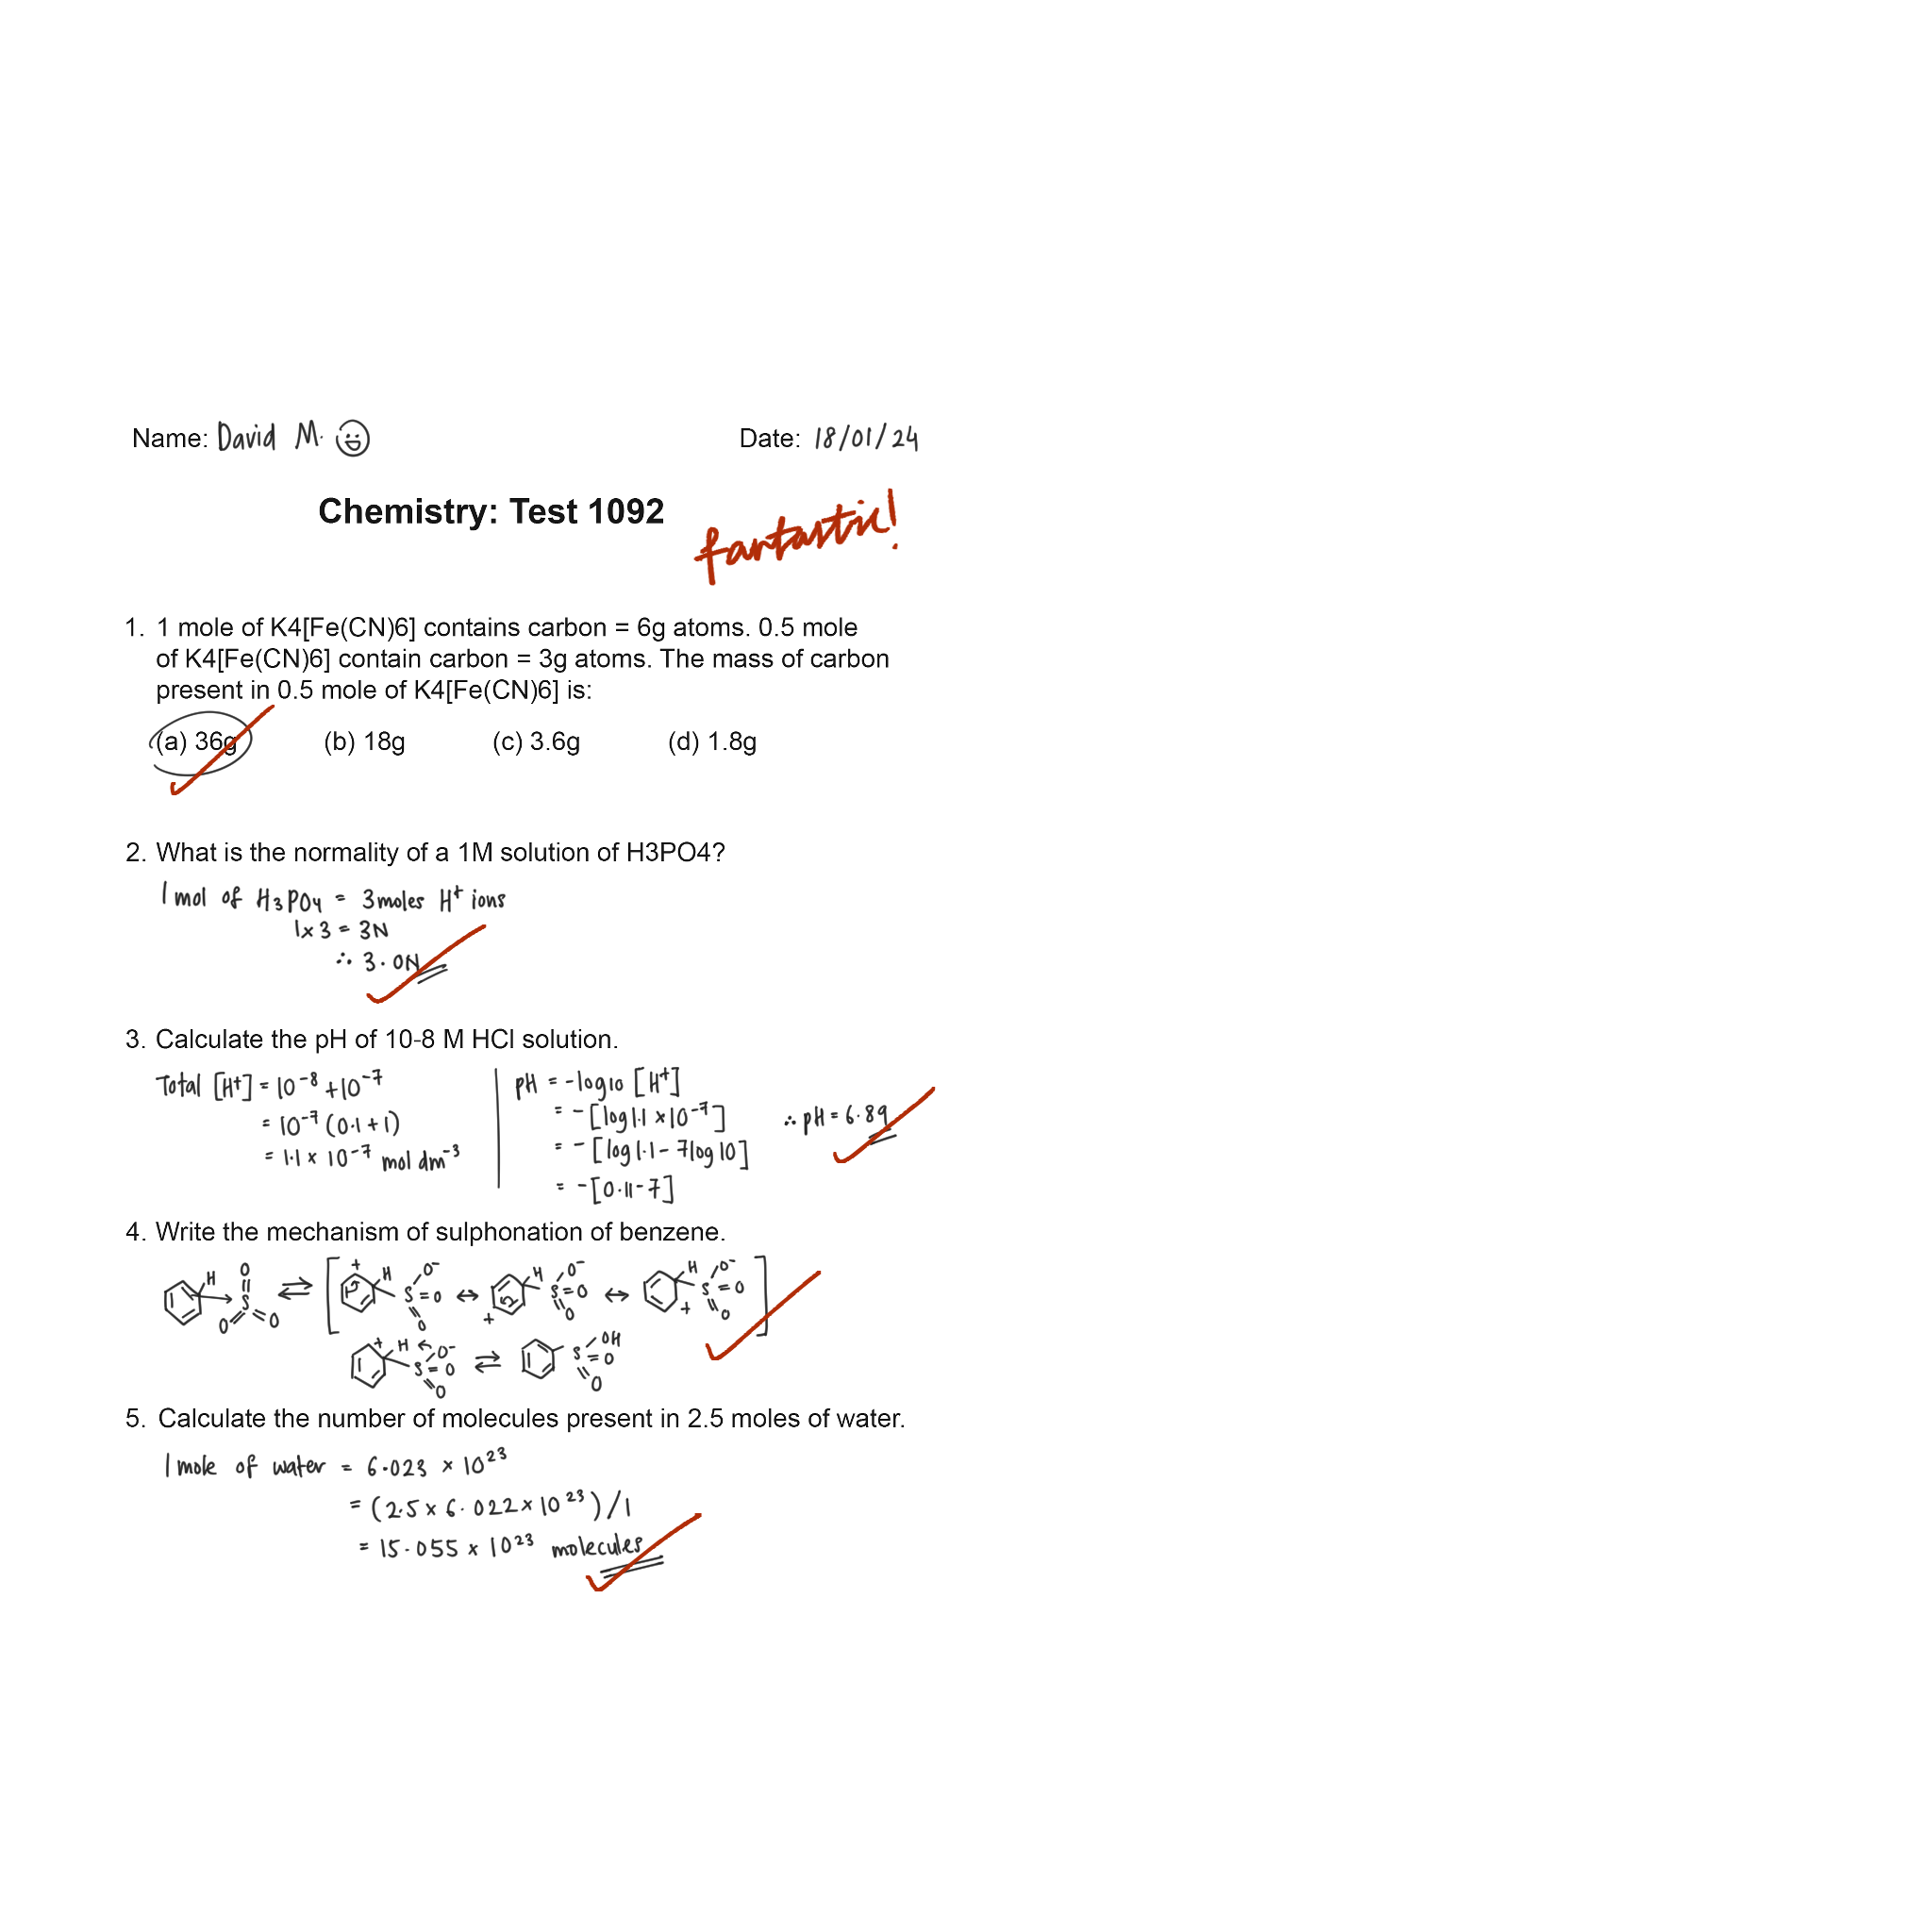 Name: David M.
Date: 18/01/24
Chemistry: Test 1092
fantastic!
1. 1 mole of K4[Fe(CN)6] contains carbon = 6g atoms. 0.5 mole
of K4[Fe(CN)6] contain carbon = 3g atoms. The mass of carbon
present in 0.5 mole of K4[Fe(CN)6] is:
(a) 36g (b) 18g (c) 3.6g (d) 1.8g
2. What is the normality of a 1M solution of H3PO4?
1 mol of H₃PO₄ = 3moles H⁺ ions
1x3 = 3N
∴ 3.0N
3. Calculate the pH of 10-8 M HCl solution.
Total [H⁺] = 10⁻⁸ + 10⁻⁷
= 10⁻⁷ (0.1+1)
= 1.1 x 10⁻⁷ mol dm⁻³
pH = -log10 [H⁺]
= -[log 1.1 x 10⁻⁷]
= -[log 1.1 - 7log 10]
= -[0.11-7]
∴ pH = 6.89
4. Write the mechanism of sulphonation of benzene.
H O S O O ⇌ [ + H O⁻ S=O O ↔ + H O⁻ S=O O ↔ H O⁻ S=O + O ]
+ H O⁻ S=O O ⇌ OH S=O O
5. Calculate the number of molecules present in 2.5 moles of water.
1 mole of water = 6.023 x 10²³
= (2.5 x 6.022 x 10²³)/1
= 15.055 x 10²³ molecules